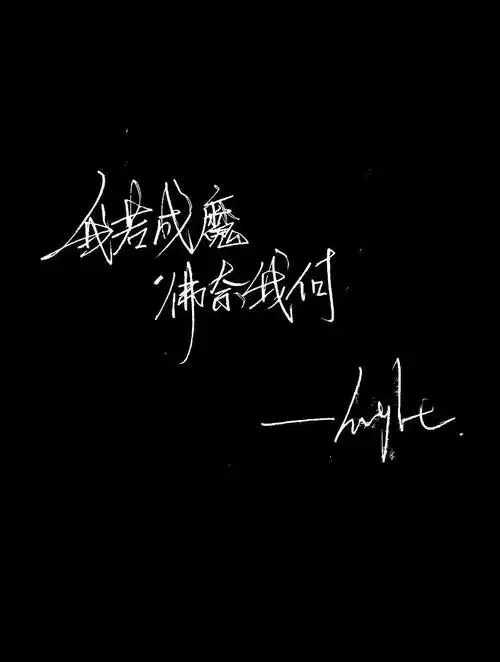 我若成魔
佛奈我何